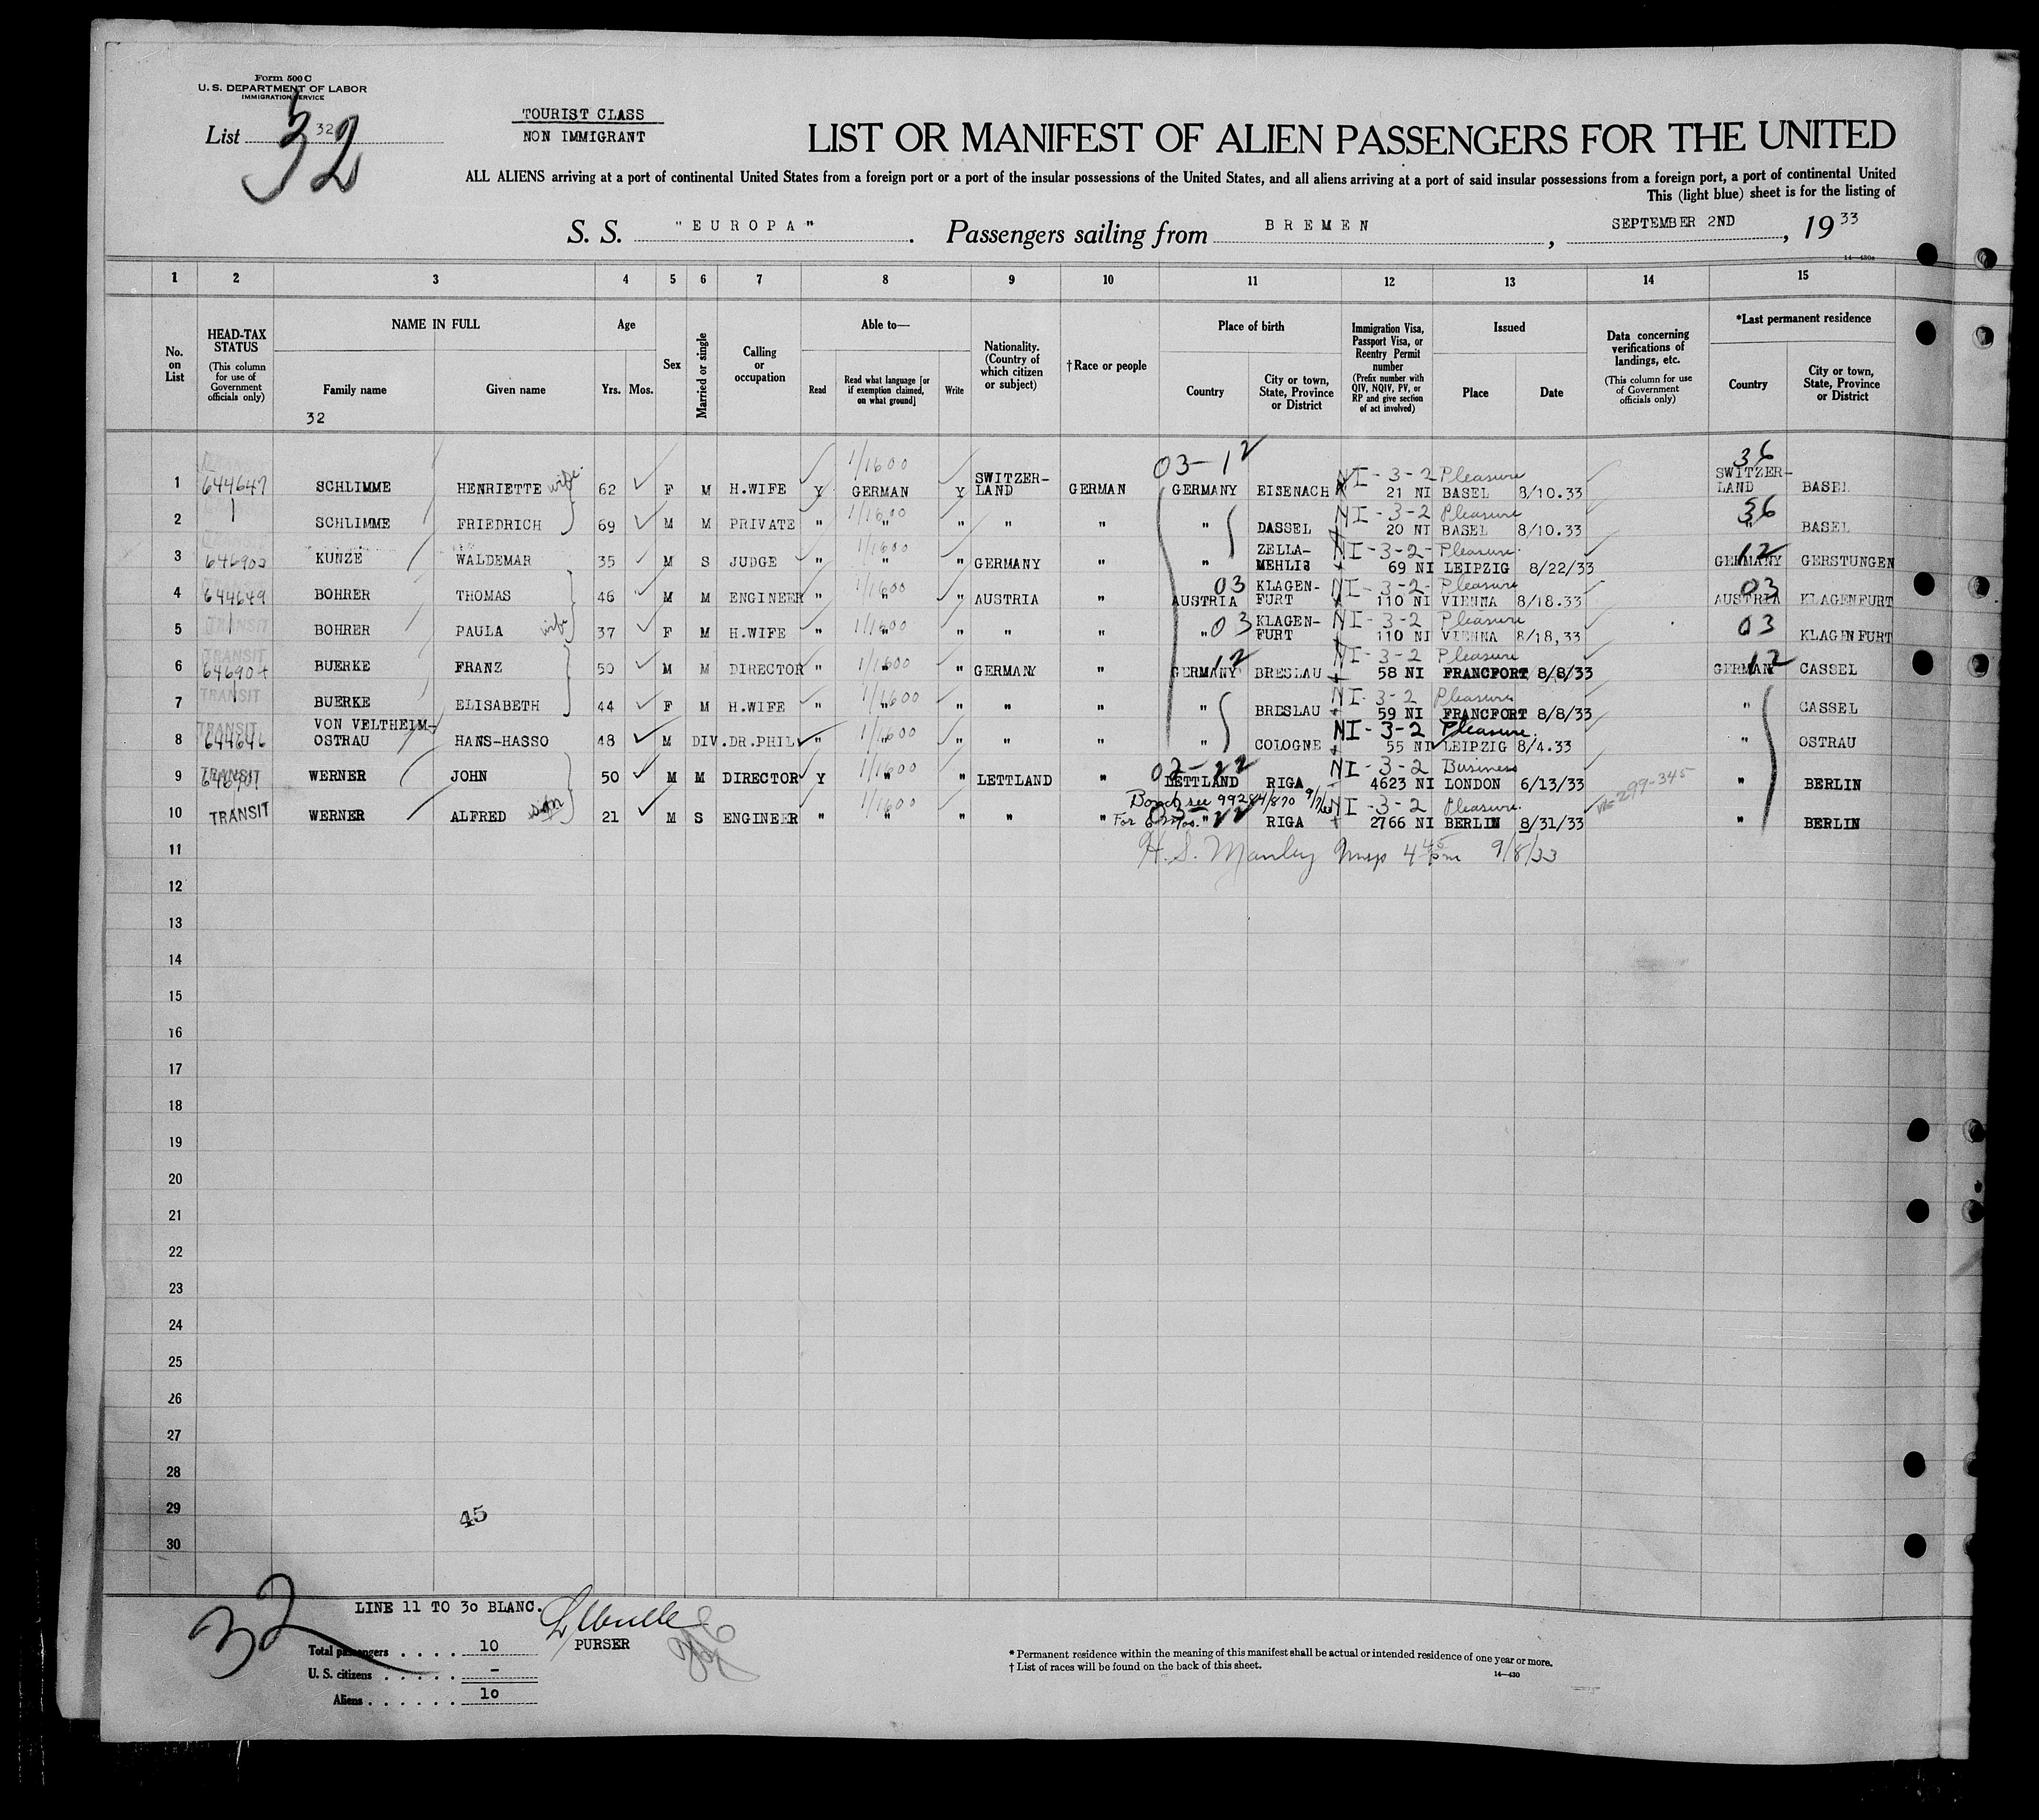 Form 500 C
U. S. DEPARTMENT OF LABOR
IMMIGRATION SERVICE
List 32
32
TOURIST CLASS
NON IMMIGRANT
LIST OR MANIFEST OF ALIEN PASSENGERS FOR THE UNITED
ALL ALIENS arriving at a port of continental United States from a foreign port or a port of the insular possessions of the United States, and all aliens arriving at a port of said insular possessions from a foreign port, a port of continental United
This (light blue) sheet is for the listing of
S. S. "EUROPA". Passengers sailing from BREMEN, SEPTEMBER 2ND, 19 33
14—430a
1 2 3 4 5 6 7 8 9 10 11 12 13 14 15
No. on List
HEAD-TAX STATUS
(This column for use of Government officials only)
NAME IN FULL
Family name
Given name
32
Age
Yrs. Mos.
Sex
Married or single
Calling or occupation
Able to—
Read
Read what language [or if exemption claimed, on what ground]
Write
Nationality. (Country of which citizen or subject)
† Race or people
Place of birth
Country
City or town, State, Province or District
Immigration Visa, Passport Visa, or Reentry Permit number
(Prefix number with QIV, NQIV, PV, or RP and give section of act involved)
Issued
Place
Date
Data concerning verifications of landings, etc.
(This column for use of Government officials only)
*Last permanent residence
Country
City or town, State, Province or District
1/1600 03-12 NI-3-2 Pleasure 36
1 644647 SCHLIMME HENRIETTE wife 62 F M H.WIFE Y GERMAN Y SWITZER-LAND GERMAN GERMANY EISENACH 21 NI BASEL 8/10.33 SWITZER-LAND BASEL
1/1600 NI-3-2 Pleasure 36
2 SCHLIMME FRIEDRICH 69 M M PRIVATE " " " " " " DASSEL 20 NI BASEL 8/10.33 BASEL
1/1600 NI-3-2- Pleasure 12
3 646903 KUNZE WALDEMAR 35 M S JUDGE " " " GERMANY " " ZELLA-MEHLIS 69 NI LEIPZIG 8/22/33 GERMANY GERSTUNGEN
1/1600 03 NI-3-2 Pleasure 03
4 644649 BOHRER THOMAS 46 M M ENGINEER " " " AUSTRIA " AUSTRIA KLAGEN-FURT 110 NI VIENNA 8/18.33 AUSTRIA KLAGENFURT
TRANSIT 1/1600 03 NI-3-2 Pleasure 03
5 BOHRER PAULA wife 37 F M H.WIFE " " " " " " KLAGEN-FURT 110 NI VIENNA 8/18,33 KLAGENFURT
TRANSIT 1/1600 12 NI-3-2 Pleasure 12
6 646904 BUERKE FRANZ 50 M M DIRECTOR " " " GERMANY " GERMANY BRESLAU 58 NI FRANCFORT 8/8/33 GERMANY CASSEL
TRANSIT 1/1600 NI-3-2 Pleasure
7 BUERKE ELISABETH 44 F M H.WIFE " " " " " " BRESLAU 59 NI FRANCFORT 8/8/33 " CASSEL
TRANSIT 1/1600 NI-3-2 Pleasure
8 644646 VON VELTHEIM-OSTRAU HANS-HASSO 48 M DIV.DR.PHIL " " " " " " COLOGNE 55 NI LEIPZIG 8/4.33 " OSTRAU
TRANSIT 1/1600 NI-3-2 Business
9 646901 WERNER JOHN 50 M M DIRECTOR Y " " LETTLAND " LETTLAND RIGA 4623 NI LONDON 6/13/33 " BERLIN
1/1600 Bond see 99284/870 NI-3-2 Pleasure 299-345
10 TRANSIT WERNER ALFRED son 21 M S ENGINEER " " " " " For " RIGA 2766 NI BERLIN 8/31/33 " BERLIN
11 H. S. Manley Insp 4 45 pm 9/8/33
12
13
14
15
16
17
18
19
20
21
22
23
24
25
26
27
28
29
45
30
32
LINE 11 TO 30 BLANC.
PURSER
Total passengers . . . . 10
U. S. citizens . . . . . -
Aliens . . . . . . 10
* Permanent residence within the meaning of this manifest shall be actual or intended residence of one year or more.
† List of races will be found on the back of this sheet.
14—430